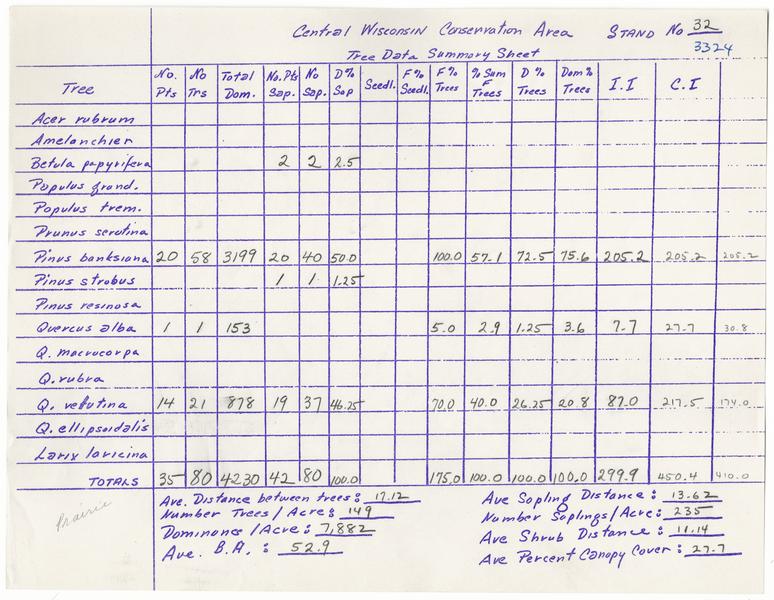 Central Wisconsin Conservation Area STAND No 32
3324
Tree Data Summary Sheet
Tree No. Pts No Trs Total Dom. No. Pts Sap. No Sap. D% Sap Seedl. F% Seedl. F% Trees % Sum F Trees D% Trees Dom% Trees I.I C.I
Acer rubrum
Amelanchier
Betula papyrifera 2 2 2.5
Populus grand.
Populus trem.
Prunus serotina
Pinus banksiana 20 58 3199 20 40 50.0 100.0 57.1 72.5 75.6 205.2 205.2 205.2
Pinus strobus 1 1 1.25
Pinus resinosa
Quercus alba 1 1 153 5.0 2.9 1.25 3.6 7.7 27.7 30.8
Q. macrocarpa
Q. rubra
Q. velutina 14 21 878 19 37 46.25 70.0 40.0 26.25 20.8 87.0 217.5 174.0
Q. ellipsoidalis
Larix laricina
TOTALS 35 80 4230 42 80 100.0 175.0 100.0 100.0 100.0 299.9 450.4 410.0
Ave. Distance between trees: 17.12 Ave Sapling Distance: 13.62
Number Trees / Acre: 149 Number Saplings/Acre: 235
Dominance / Acre: 7,882 Ave Shrub Distance: 11.14
Ave. B.A.: 52.9 Ave Percent Canopy Cover: 27.7
Prairie